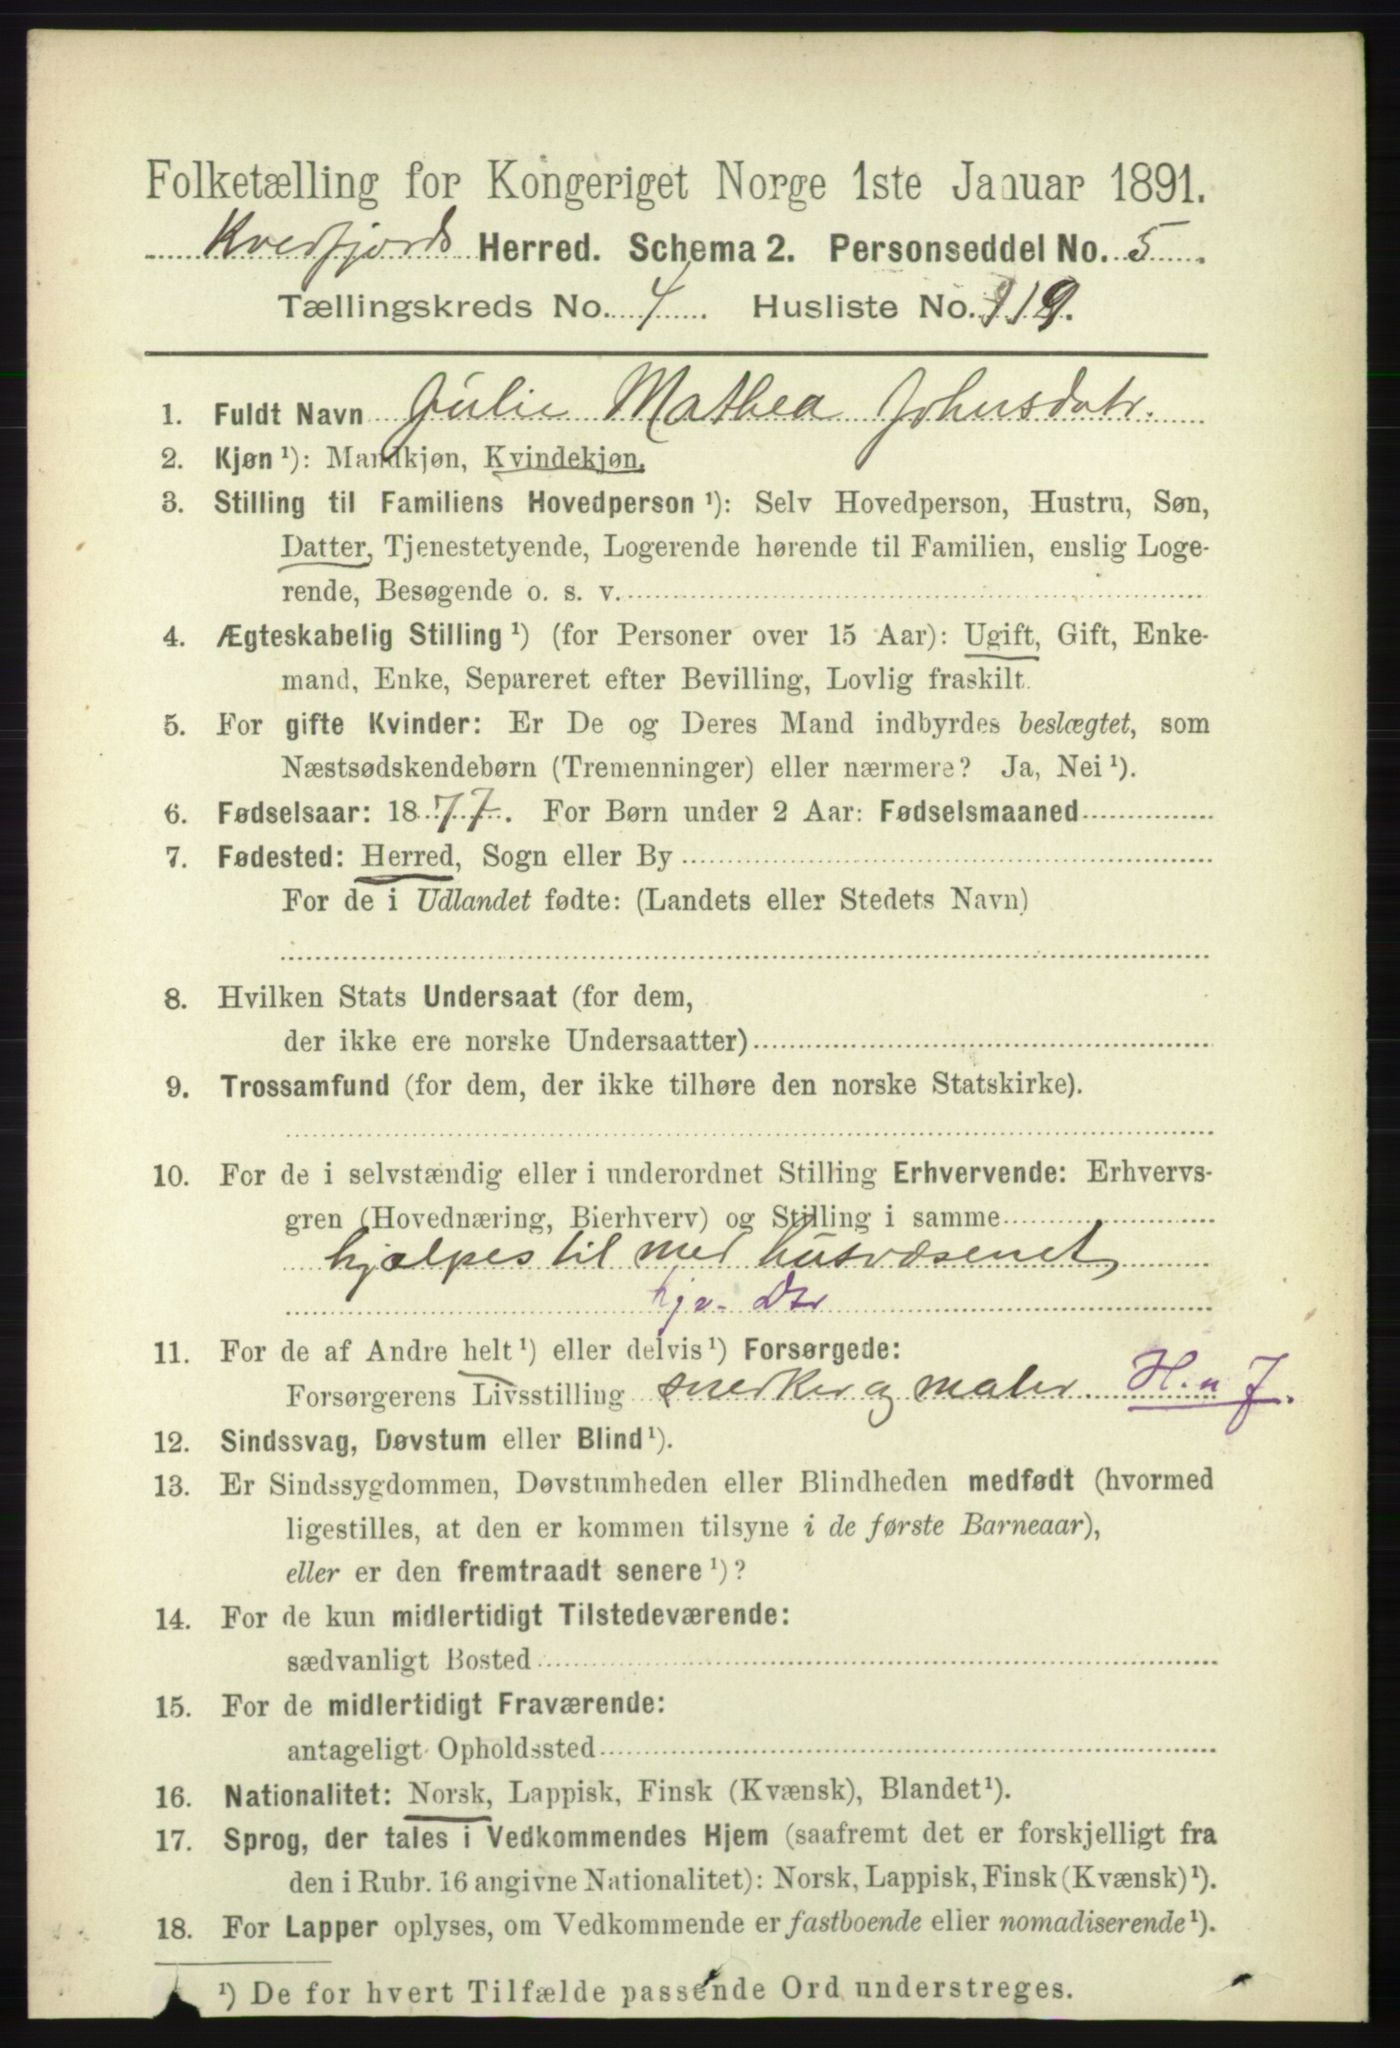 Folketælling for Kongeriget Norge 1ste Januar 1891.
Kvedfjords Herred. Schema 2. Personseddel No. 5
Tællingskreds No. 4 Husliste No. 119.
1. Fuldt Navn Julie Mathea Johnsdatr.
2. Kjøn ¹): Mandkjøn, Kvindekjøn.
3. Stilling til Familiens Hovedperson ¹): Selv Hovedperson, Hustru, Søn,
Datter, Tjenestetyende, Logerende hørende til Familien, enslig Loge-
rende, Besøgende o. s. v.
4. Ægteskabelig Stilling ¹) (for Personer over 15 Aar): Ugift, Gift, Enke-
mand, Enke, Separeret efter Bevilling, Lovlig fraskilt.
5. For gifte Kvinder: Er De og Deres Mand indbyrdes beslægtet, som
Næstsødskendebørn (Tremenninger) eller nærmere? Ja, Nei ¹).
6. Fødselsaar: 1877. For Børn under 2 Aar: Fødselsmaaned
7. Fødested: Herred, Sogn eller By
For de i Udlandet fødte: (Landets eller Stedets Navn)
8. Hvilken Stats Undersaat (for dem,
der ikke ere norske Undersaatter)
9. Trossamfund (for dem, der ikke tilhøre den norske Statskirke).
10. For de i selvstændig eller i underordnet Stilling Erhvervende: Erhvervs-
gren (Hovednæring, Bierhverv) og Stilling i samme
hjælpes til med husvæsenet,
hjv. Dtr
11. For de af Andre helt ¹) eller delvis ¹) Forsørgede:
Forsørgerens Livsstilling snedker og maler H. u J.
12. Sindssvag, Døvstum eller Blind ¹).
13. Er Sindssygdommen, Døvstumheden eller Blindheden medfødt (hvormed
ligestilles, at den er kommen tilsyne i de første Barneaar),
eller er den fremtraadt senere ¹)?
14. For de kun midlertidigt Tilstedeværende:
sædvanligt Bosted
15. For de midlertidigt Fraværende:
antageligt Opholdssted
16. Nationalitet: Norsk, Lappisk, Finsk (Kvænsk), Blandet ¹).
17. Sprog, der tales i Vedkommendes Hjem (saafremt det er forskjelligt fra
den i Rubr. 16 angivne Nationalitet): Norsk, Lappisk, Finsk (Kvænsk) ¹).
18. For Lapper oplyses, om Vedkommende er fastboende eller nomadiserende ¹).
¹) De for hvert Tilfælde passende Ord understreges.